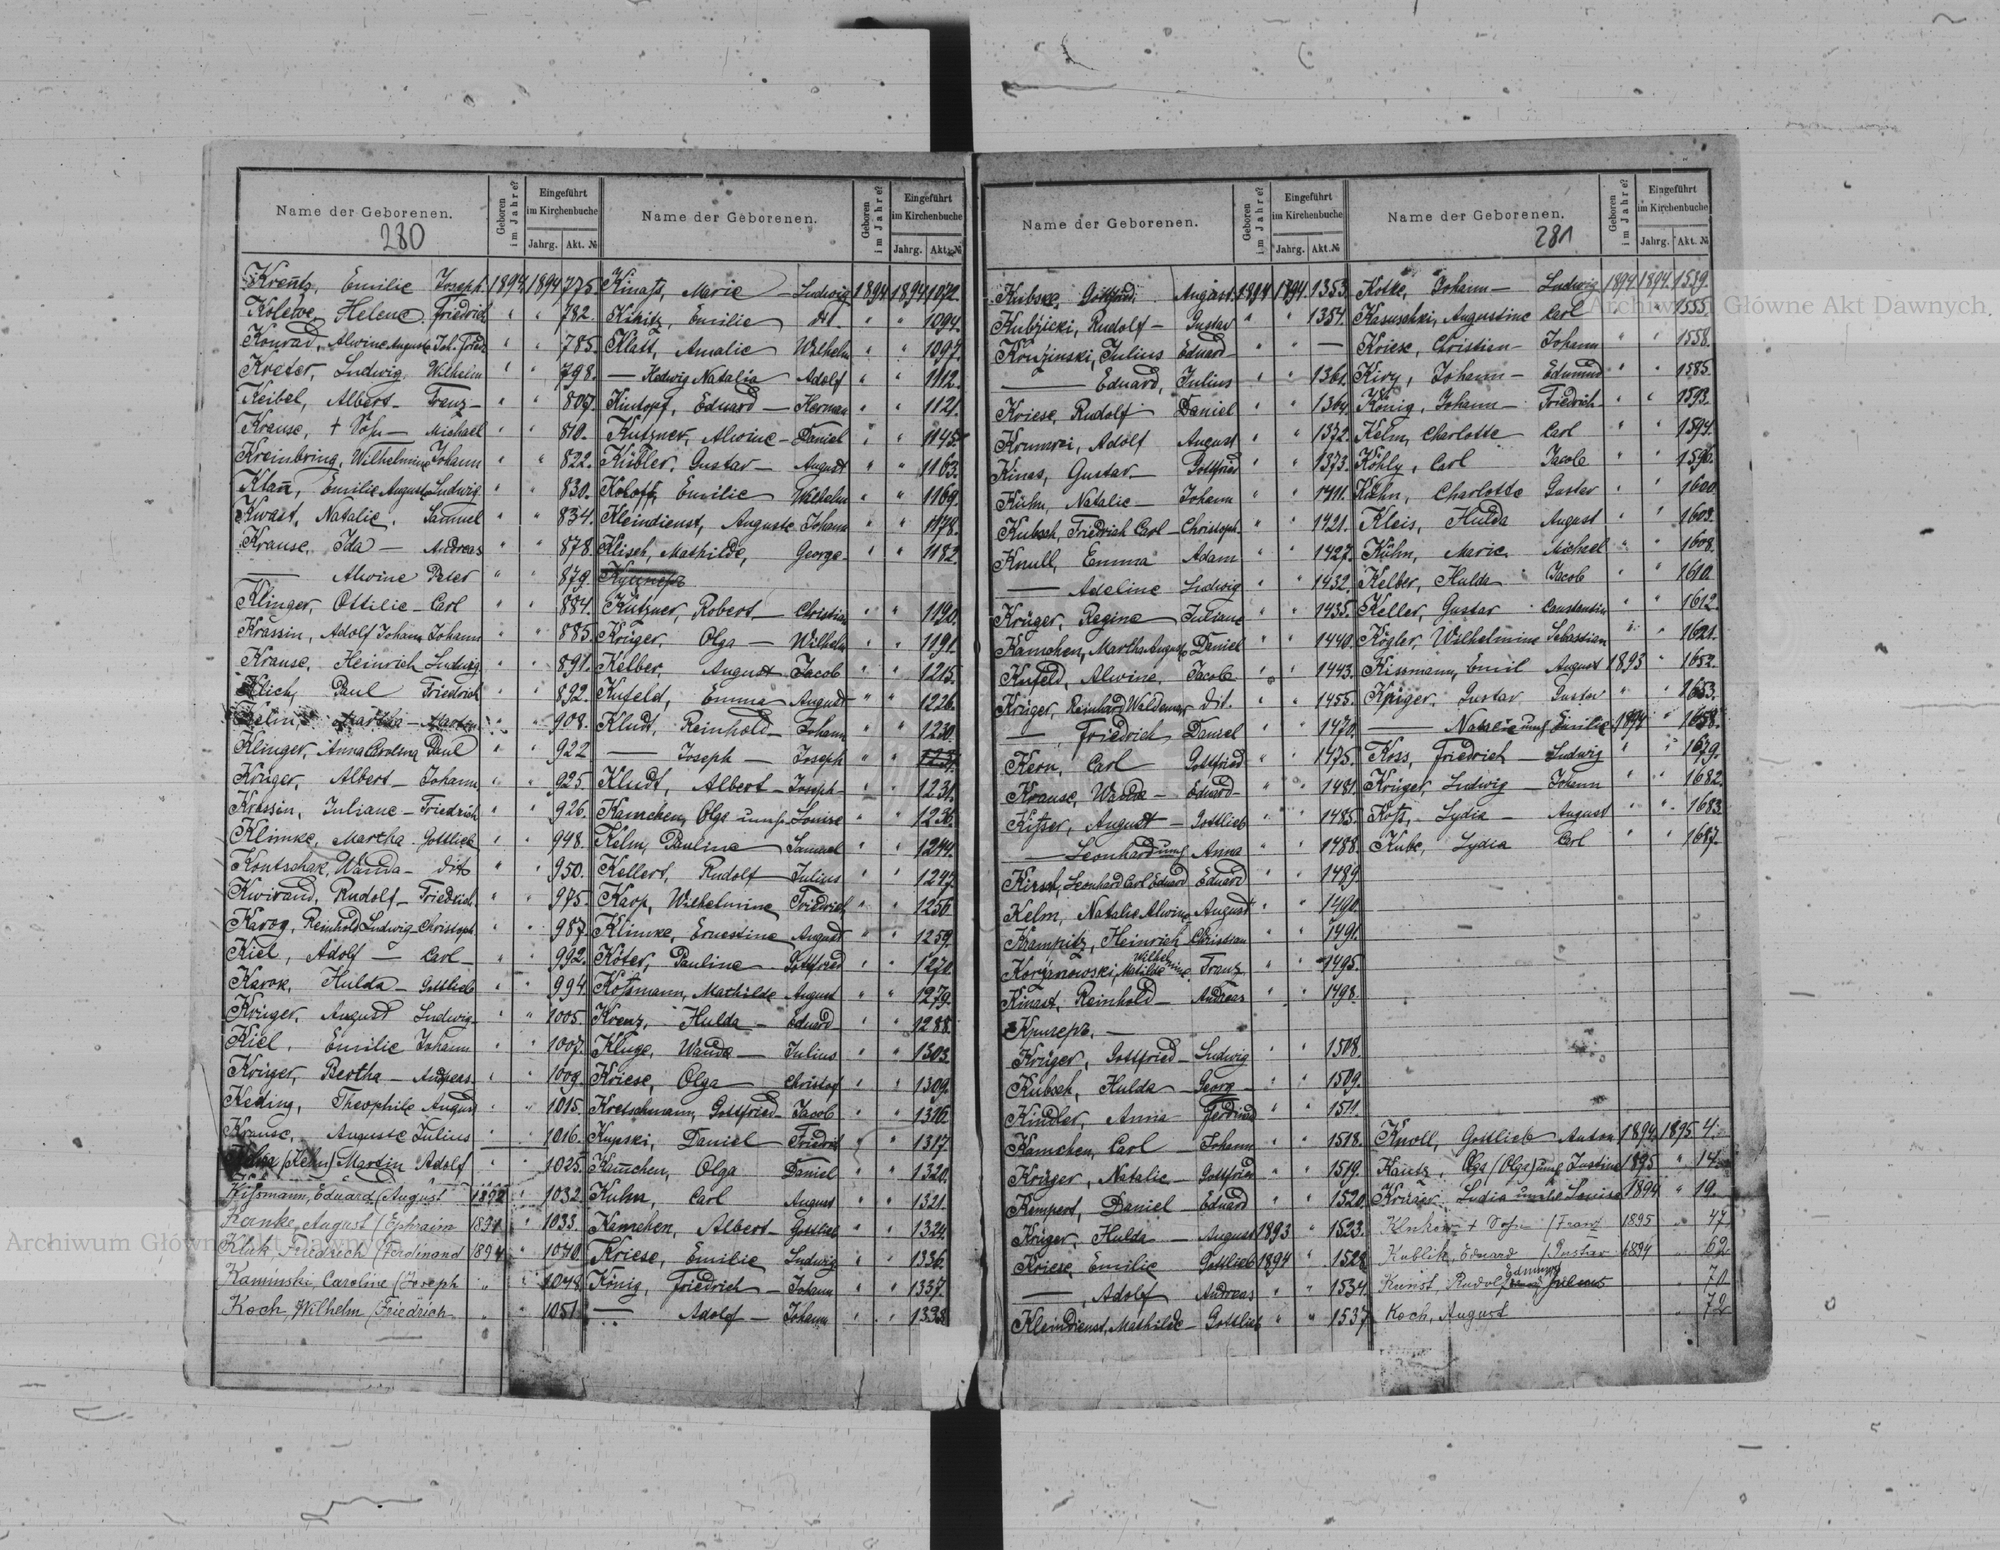 Name der Geborenen.
280
Geboren im Jahre?
Eingeführt im Kirchenbuche
Jahrg. Akt. №
Krentz, Emilie Joseph 1894 1894 775.
Koletve, Helene Friedrich " " 782.
Konrad, Alwine Auguste Joh. Friedr. " " 785.
Kreter, Ludwig Wilhelm " " 798.
Keibel, Albert – Franz – " " 807.
Krause, + Sohn – Michael " " 810.
Kreinbring, Wilhelmine Johann " " 822.
Klan̄, Emilie Auguste Ludwig " " 830.
Kwast, Natalie. Samuel " " 834.
Krause, Ida – Andreas " " 878.
— Alwine Peter " " 879.
Klinger, Ottilie – Carl " " 884.
Krassin, Adolf Johann Johann " " 885.
Krause, Heinrich Ludwig " " 891.
Klich, Paul Friedrich " " 892.
Martha – Martin " " 908.
Klinger, Anna Carolina Paul " " 922
Krüger, Albert – Johann " " 925.
Krassin, Juliane – Friedrich " " 926.
Klimke, Martha Gottlieb " " 948.
Kontschak, Wanda – dito " " 950.
Kwirand, Rudolf – Friedrich " " 975.
Karog, Reinhold Ludwig – Christoph " " 987.
Kiel, Adolf – Carl – " " 992.
Karok, Hulda – Gottlieb " " 994
Krüger, August Ludwig " " 1005.
Kiel, Emilie Johann " " 1007.
Krüger, Bertha – Andreas " " 1009.
Keding, Theophile August " " 1015.
Krause, Auguste Julius " " 1016.
(Kehn) Martin Adolf " " 1025.
Kißmann, Eduard / August 1892 " 1032.
Kanke, August / Ephraim 1891 " 1033.
Kluk Friedrich / Ferdinand 1894 " 1040.
Kaminski, Caroline / Joseph " " 1048.
Koch, Wilhelm / Friedrich " " 1051.
Name der Geborenen.
Geboren im Jahre?
Eingeführt im Kirchenbuche
Jahrg. Akt. №
Kinast, Marie – Ludwig 1894 1894 1072.
Kikitz, Emilie dit. " " 1094.
Klatt, Amalie Wilhelm " " 1097.
— Hedwig Natalia Adolf " " 1112.
Kintopf, Eduard – Herman " " 1121.
Kutzner, Alwine – Daniel " " 1145.
Kübler, Gustav – August " " 1163.
Kohoff, Emilie Wilhelm " " 1169.
Kleindienst, Auguste Johann " " 1178.
Klisch, Mathilde, George – " " 1182.
Кутнеръ
Kutzner, Robert, – Christian " " 1190.
Krüger, Olga – Wilhelm " " 1191.
Kelber, August Jacob " " 1215.
Kufeld, Emma August " " 1226.
Kludt, Reinhold – Johann " " 1230.
— Joseph – Joseph " "
Kludt, Albert – Joseph – " " 1231.
Kamchen, Olga unehe. Louise " " 1236.
Kelm, Pauline Samuel " " 1244.
Kellert, Rudolf Julius " " 1247.
Karp, Wilhelmine Friedrich " " 1256.
Klimke, Ernestine August " " 1259.
Köter, Pauline Gottfried " " 1270.
Koßmann, Mathilde August " " 1279.
Krenz, Hulda – Eduard " " 1288.
Kluge, Wanda – Julius " " 1303.
Kriese, Olga Christof " " 1309.
Kretschmann, Gottfried – Jacob " " 1316.
Kupski, Daniel Friedrich " " 1317.
Kamchen, Olga Daniel " " 1320.
Kuhn, Carl August " " 1321.
Kamchen, Albert – Gottlieb " " 1324.
Kriese, Emilie Ludwig " " 1336.
König, Friedrich – Johann " " 1337.
— Adolf – Johann " " 1338.
Name der Geborenen.
Geboren im Jahre?
Eingeführt im Kirchenbuche
Jahrg. Akt. №
Kubske, Gottfried August 1894 1894 1353.
Kubzicki, Rudolf – Gustav " " 1354.
Kruzinski, Julius Eduard – " " —
— Eduard, Julius " " 1361.
Kriese, Rudolf Daniel " " 1364.
Krumrei, Adolf August " " 1372.
Kines, Gustav – Gottfried " " 1373.
Kühn, Natalie – Johann " " 1411.
Kubsch, Friedrich Carl – Christoph " " 1421.
Knull, Emma Adam " " 1427.
— Adeline Ludwig " " 1432.
Krüger, Regine Juliane " " 1435.
Kamchen, Martha Auguste Daniel " " 1440.
Kufeld, Alwine, Jacob " " 1443.
Krüger, Reinhard Waldemar dit. " " 1455.
— Friedrich Daniel " " 1470.
Kern, Carl Gottfried " " 1475.
Krause, Wanda – Eduard – " " 1481.
Kißer, August – Gottlieb " " 1485.
— Leonhard unehe Anna " " 1488.
Kirsch, Leonhard Carl Eduard Eduard " " 1489
Kelm, Natalie Alwine August " " 1490.
Krampitz, Heinrich Christian " " 1491.
Korzanowski, Mathilde Wilhelmine Franz " " 1495.
Kinast, Reinhold – Andreas " " 1498.
Кригеръ. –
Krüger, Gottfried – Ludwig " " 1508.
Kubsch, Hulda – Georg – " " 1509.
Kindler, Anna Ferdinand " " 1511.
Kamchen, Carl – Johann " " 1518.
Krüger, Natalie – Gottfried " " 1519.
Kempert, Daniel – Eduard " " 1520.
Krüger, Hulda – August 1893 " 1523.
Kriese, Emilie Gottlieb 1894 " 1528
— , Adolf Andreas " " 1534
Kleindienst, Mathilde – Gottlieb " " 1537
Name der Geborenen.
281
Geboren im Jahre?
Eingeführt im Kirchenbuche
Jahrg. Akt. №
Kolke, Johann – Ludwig 1894 1894. 1539.
Kasuschki, Augustine Carl " " 1555.
Kriese, Christian – Johann " " 1558.
Kiry, Johann – Edmund " " 1585.
König, Johann – Friedrich " " 1593.
Kelm, Charlotte – Carl " " 1594.
Köhly, Carl Jacob " " 1596.
Kühn, Charlotte Gustav " " 1600
Kleis, Hulda August " " 1603.
Kühn, Marie Michael " " 1608.
Kelber, Hulda Jacob " " 1610.
Keller, Gustav Constantin " " 1612.
Kögler, Wilhelmine Sebastian " " 1621.
Kissmann, Emil August 1893 " 1652.
Krüger, Gustav Gustav " " 1653.
— Natalie unehe Emilie 1894 " 1658.
Koss, Friedrich – Ludwig " " 1679.
Krüger, Ludwig – Johann " " 1682.
Koß, Lydia – August " " 1683
Kube, Lydia Carl " " 1687.
Knoll, Gottlieb Anton 1894 1895 4.
Kautz, Olga (Olge) unehe Justine 1895 " 14.
Krüger Lydia unehe Louise 1894 " 19.
+ Sohn / Franz 1895 " 47
Kublik, Eduard / Gustav 1894 " 62
Kunst, Rudolf Edmund Julius " 71
Koch, August " 72
Archiwum Główne Akt Dawnych
Archiwum Główne Akt Dawnych